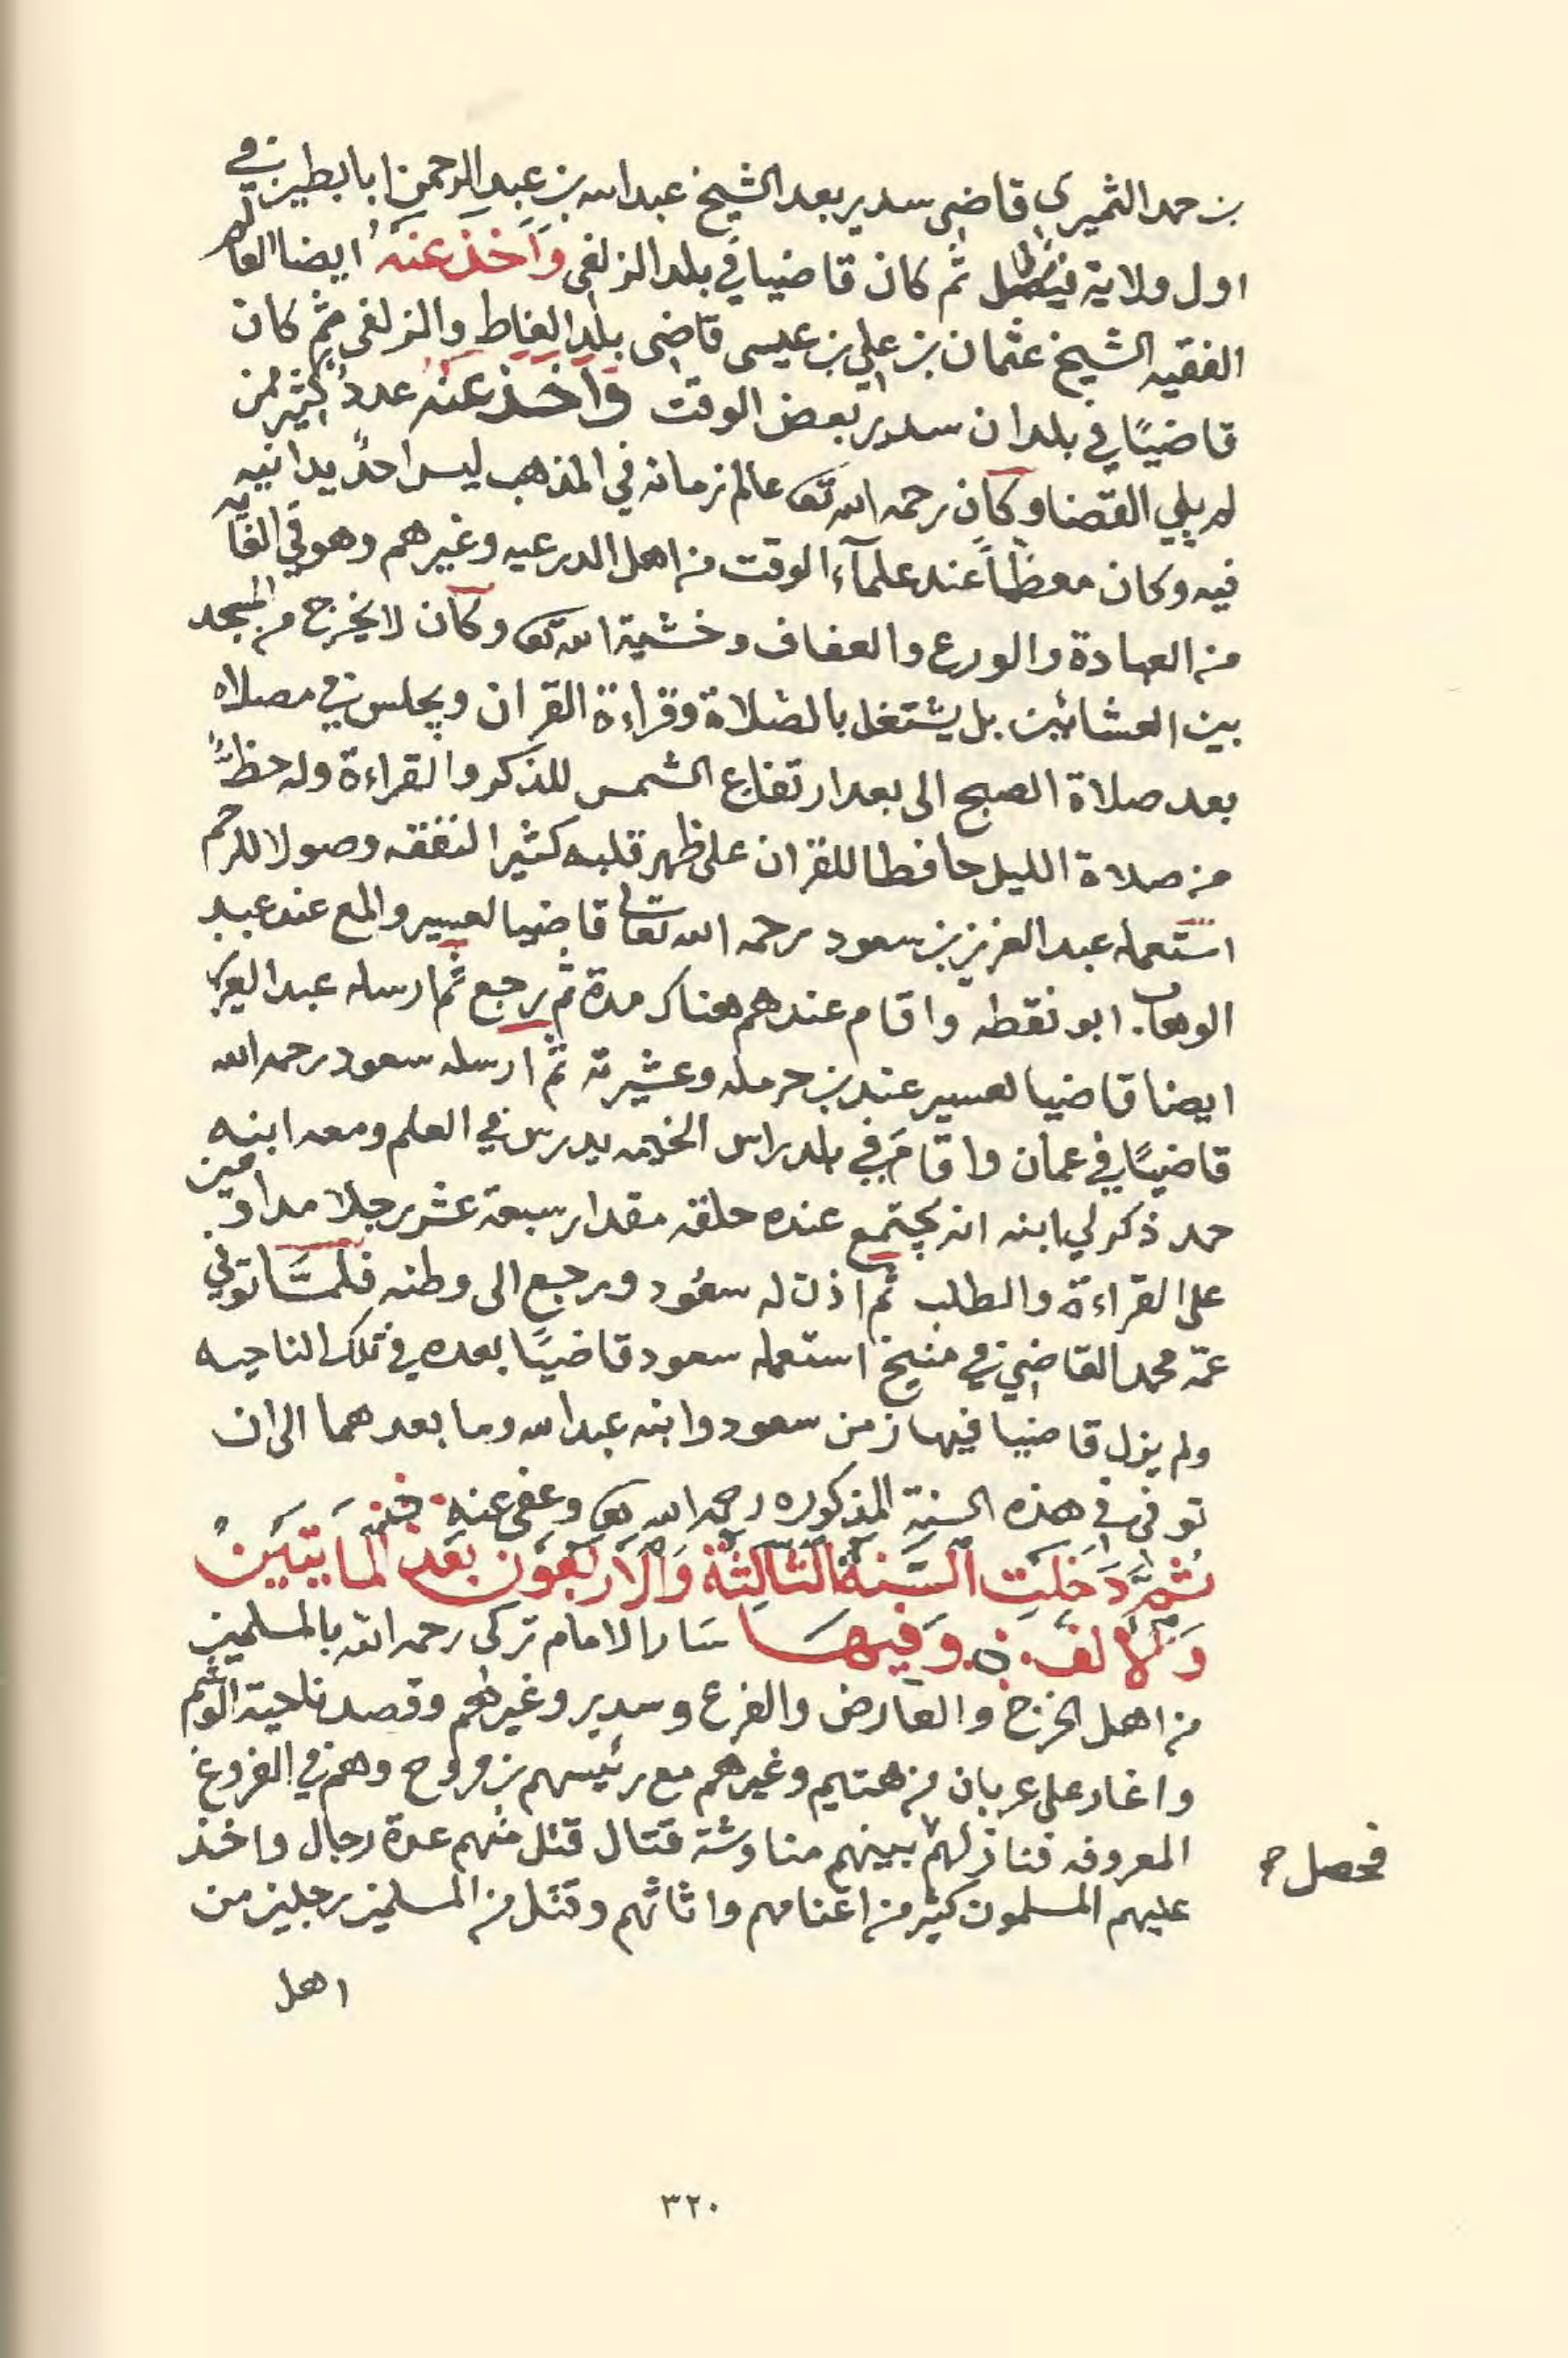 بن حمد الثميري قاضي سدير بعد الشيخ عبد الله بن عبد الرحمن ابا بطين في
اول ولاية فيصل ثم كان قاضيا في بلد الزلفي وأخذ عنه ايضا العالم
الفقيه الشيخ عثمان بن علي بن عيسى قاضي بلد الغاط والزلفي ثم كان
قاضيًا في بلدان سدير بعض الوقت وأخذ عنه عددٌ كثير ممن
لم يلي القضا وكان رحمه الله تعالى عالم زمانه في المذهب ليس احدٌ يدانيه
فيه وكان معظمًا عند علمآء الوقت من اهل الدرعيه وغيرهم وهو في الغايه
من العبادة والورع والعفاف وخشية الله تعالى وكان لا يخرج من المسجد
بين العشائين بل يشتغل بالصلاة وقراءة القران ويجلس في مصلاه
بعد صلاة الصبح الى بعد ارتفاع الشمس للذكر والقراءة وله حظٌّ
من صلاة الليل حافطا للقران على ظهر قلبه كثير النفقه وصولا للرحم
استعمله عبد العزيز بن سعود رحمه الله تعالى قاضيا لعسير والمع عند عبد
الوهاب ابو نقطه واقام عندهم هناك مدة ثم رجع ثم ارسله عبد العزيز
ايضا قاضيا لعسير عند بن حرمله وعشيرته ثم ارسله سعود رحمه الله
قاضيًا في عمان واقام في بلد راس الخيمه يدرس في العلم ومعه ابنه
حمد ذكر لي ابنه انه يجتمع عنده حلقه مقدار سبعة عشر رجلا مداومين
على القراءة والطلب ثم اذن له سعود ورجع الى وطنه فلمّا توفي
عمّه محمد القاضي في منيخ استعمله سعود قاضيًا بعده في تلك الناحيه
ولم يزل قاضيا فيها زمن سعود وابنه عبد الله وما بعدهما الى ان
توفي في هذه السنة المذكوره رحمه الله تعالى وعفى عنه
ثم دخلت السنة الثالثة والاربعون بعد المايتين
والالف وفيها سار الامام تركي رحمه الله بالمسلمين
من اهل الخرج والعارض والفرع وسدير وغيرهم وقصد ناحية الوشم
واغار على عربان من هتيم وغيرهم مع رئيسهم بن مروح وهم في الفروغ
المعروفه فنازلهم بينهم مناوشة قتال قتل منهم عدة رجال واخذ
فحصل صح
عليهم المسلمون كثير من اغنامهم واثاثهم وقتل من المسلمين رجلين من
اهل
٣٢٠